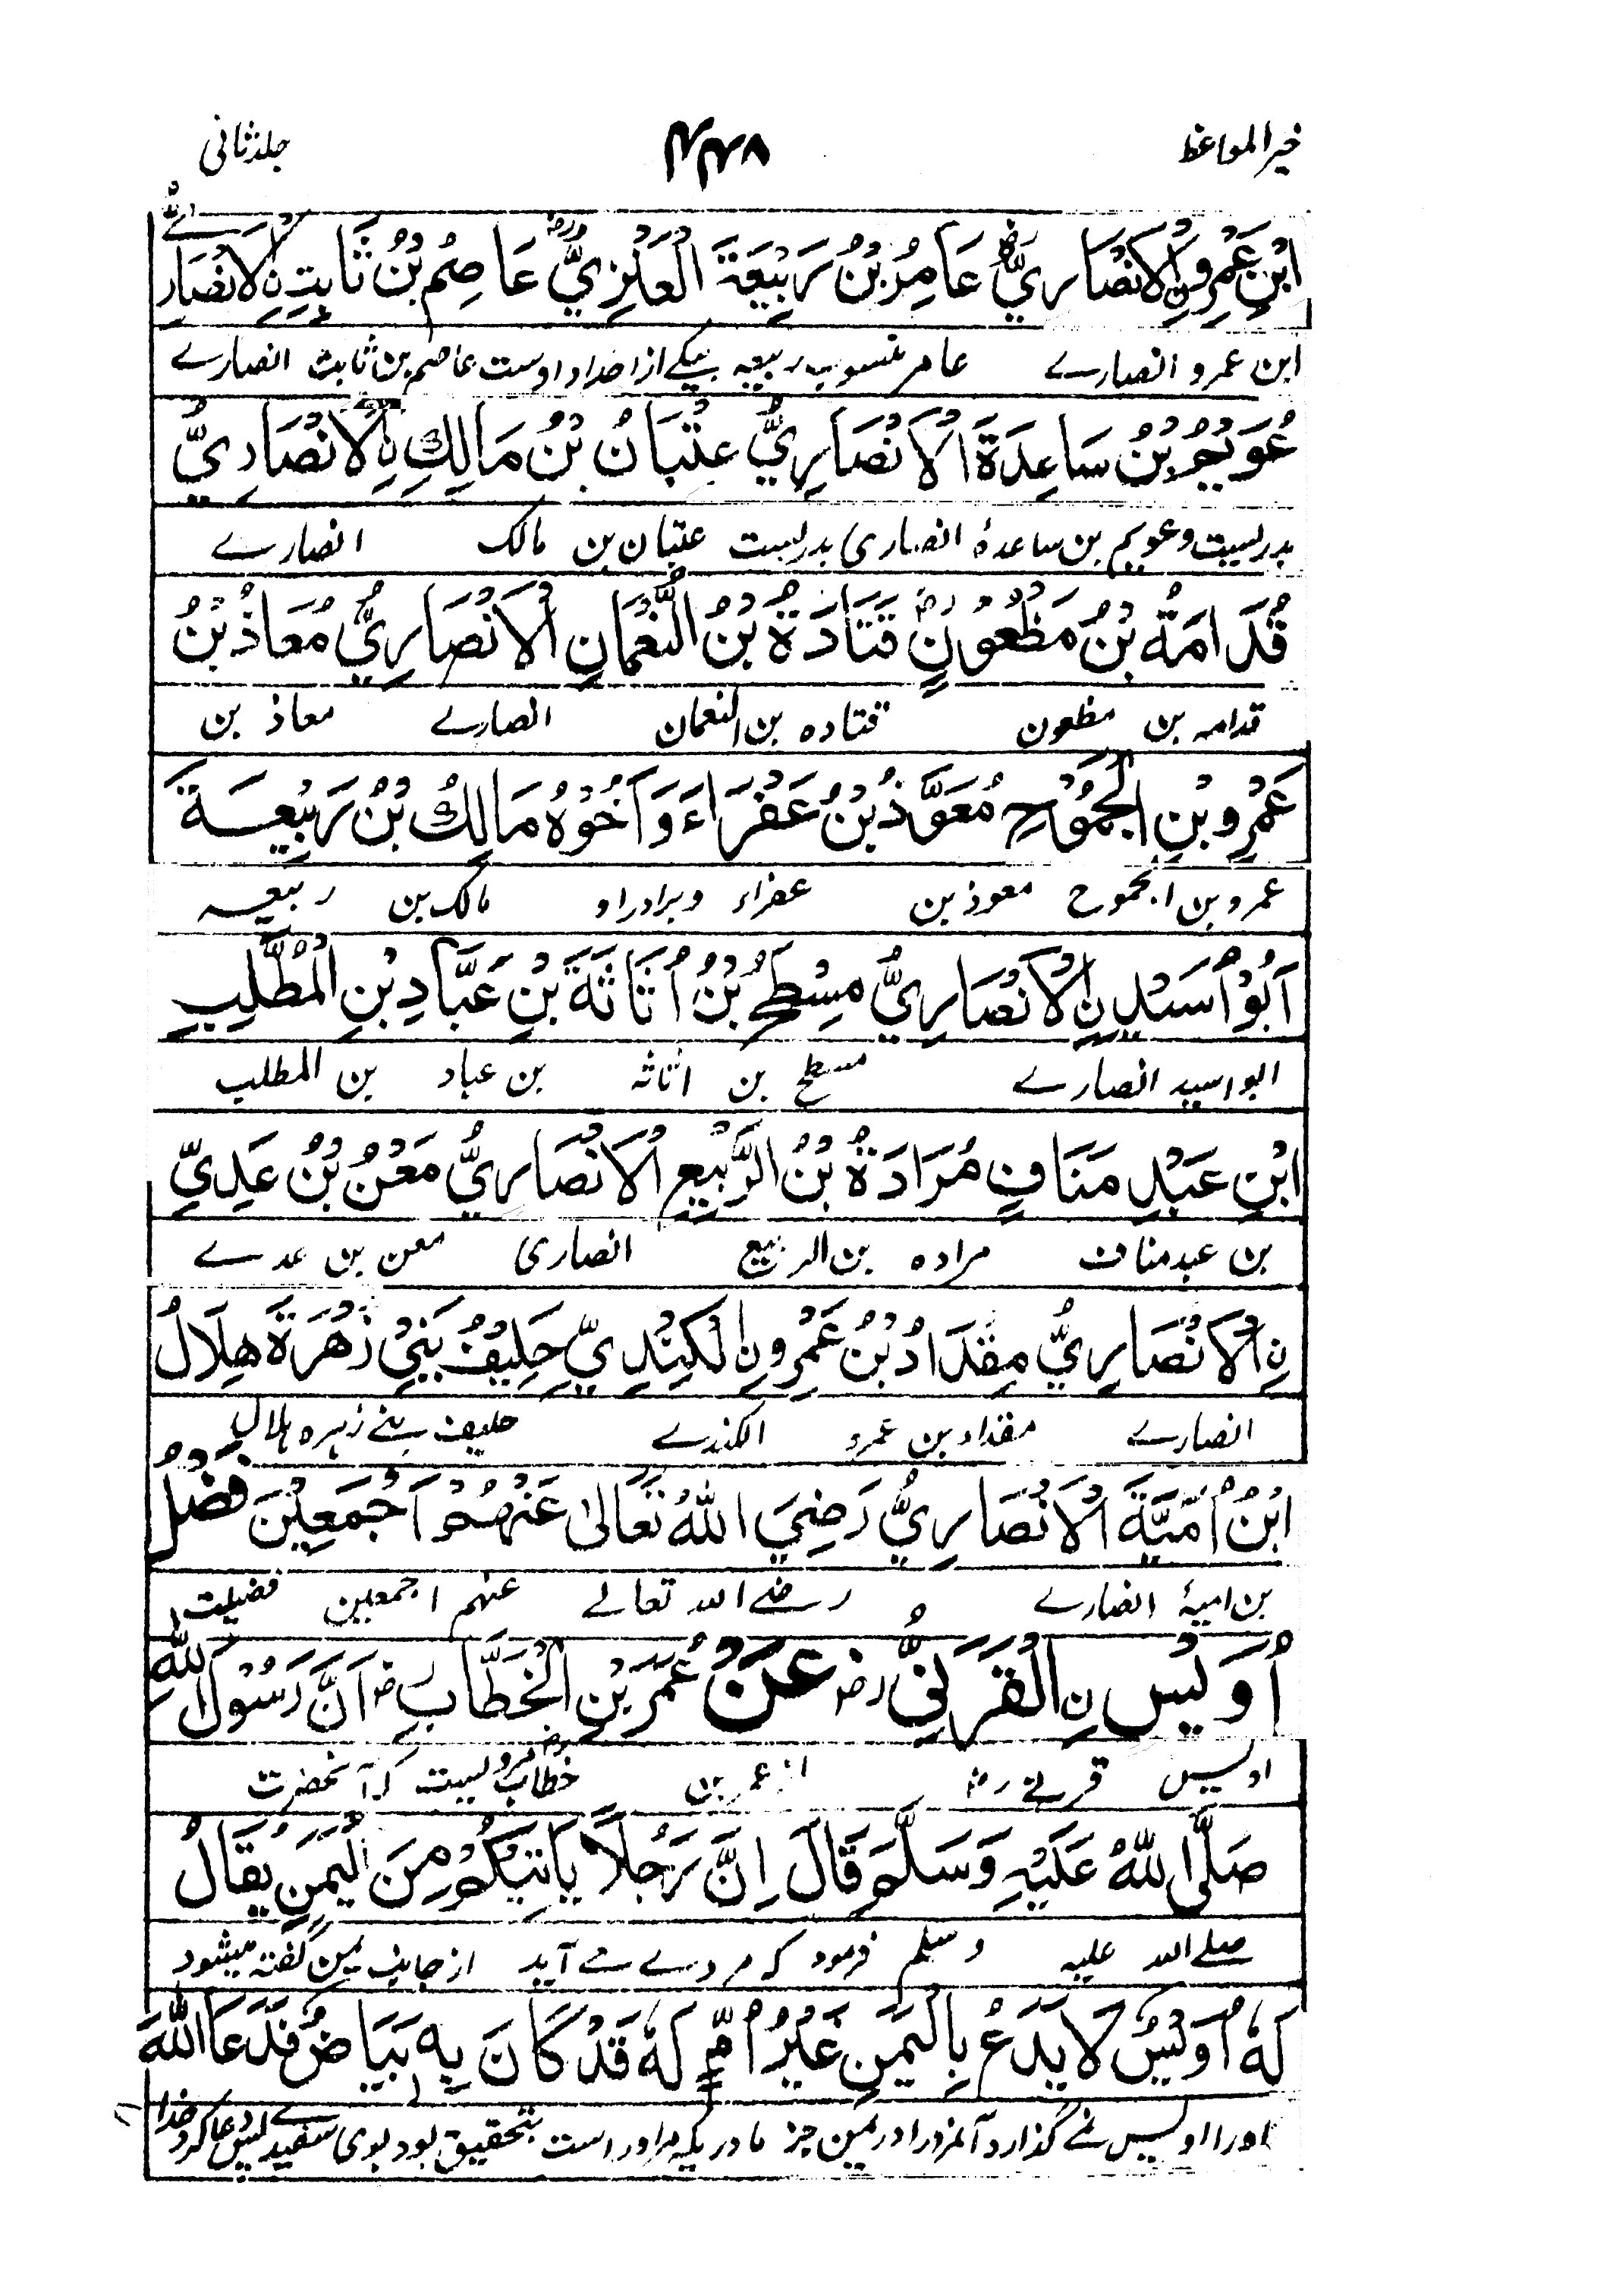 خیر المواعظ
۴۴۸
جلد ثانی
ابْنِ عَمْرِونِ الْاَنْصَارِيُّ عَامِرُ بْنُ رَبِيْعَةَ الْعَنَزِيُّ عَاصِمُ بْنُ ثَابِتِ نِ الْاَنْصَارِيُّ
ابن عمرو انصارے عامر منسوب ربیعہ یکے از اجداد اوست عاصم بن ثابت انصارے
عُوَيْمُ بْنُ سَاعِدَةَ الْاَنْصَارِيُّ عِتْبَانُ بْنُ مَالِكِ نِ الْاَنْصَارِيُّ
بدریست و عویم بن ساعدہ انصاری بدریست عتبان بن مالک انصارے
قُدَامَةُ بْنُ مَظْعُوْنٍ قَتَادَةُ بْنُ النُّعْمَانِ الْاَنْصَارِيُّ مُعَاذُ بْنُ
قدامہ بن مظعون قتادہ بن النعمان انصارے معاذ بن
عَمْرِو بْنِ الْجَمُوْحِ مُعَوَّذُ بْنُ عَفْرَاءَ وَاَخُوْهُ مَالِكُ بْنُ رَبِيْعَةَ
عمرو بن الجموح معوذ بن عفراء و برادر او مالک بن ربیعہ
اَبُوْ اُسَيْدِ نِ الْاَنْصَارِيُّ مِسْطَحُ بْنُ اُثَاثَةَ بْنِ عَبَّادِ بْنِ الْمُطَّلِبِ
ابو اسید انصارے مسطح بن اثاثہ بن عباد بن المطلب
ابْنِ عَبْدِ مَنَافٍ مُرَادَةُ بْنُ الرَّبِيْعِ الْاَنْصَارِيُّ مَعْنُ بْنُ عَدِيِّ
بن عبد مناف مرادہ بن الربیع انصاری معن بن عدے
نِ الْاَنْصَارِيُّ مِقْدَادُ بْنُ عَمْرِونِ الْكِنْدِيِّ حَلِيْفُ بَنِيْ زُهْرَةَ هِلَالُ
انصارے مقداد بن عمرو الکندے حلیف بنے زہرہ ہلال
ابْنُ اُمَيَّةَ الْاَنْصَارِيُّ رَضِيَ اللّٰهُ تَعَالٰى عَنْهُمْ اَجْمَعِيْنَ فَضْلُ
بن امیۂ انصارے رضے اللہ تعالے عنہم اجمعین فضیلت
اُوَيْسِ نِ الْقَرَنِيِّ رض عَنْ عُمَرَ بْنِ الْخَطَّابِ رض اَنَّ رَسُوْلَ اللّٰهِ
اویس قرنے رض از عمر بن خطاب رض مرویست کہ آنحضرت
صَلَّى اللّٰهُ عَلَيْهِ وَسَلَّمَ قَالَ اِنَّ رَجُلًا يَاْتِيْكُمْ مِنَ الْيَمَنِ يُقَالُ
صلے اللہ علیہ و سلم فرمود کہ مردے مے آید از جانب یمن گفتہ میشود
لَهٗ اُوَيْسٌ لَا يَدَعُ بِالْيَمَنِ غَيْرَ اُمٍّ لَهٗ قَدْ كَانَ بِهٖ بَيَاضٌ فَدَعَا اللّٰهَ
اورا اویس نمے گذارد آنمرد را در یمن جز مادریکہ مر اوراست بتحقیق بود بوی سفیدے پس دعا کرد خدا را